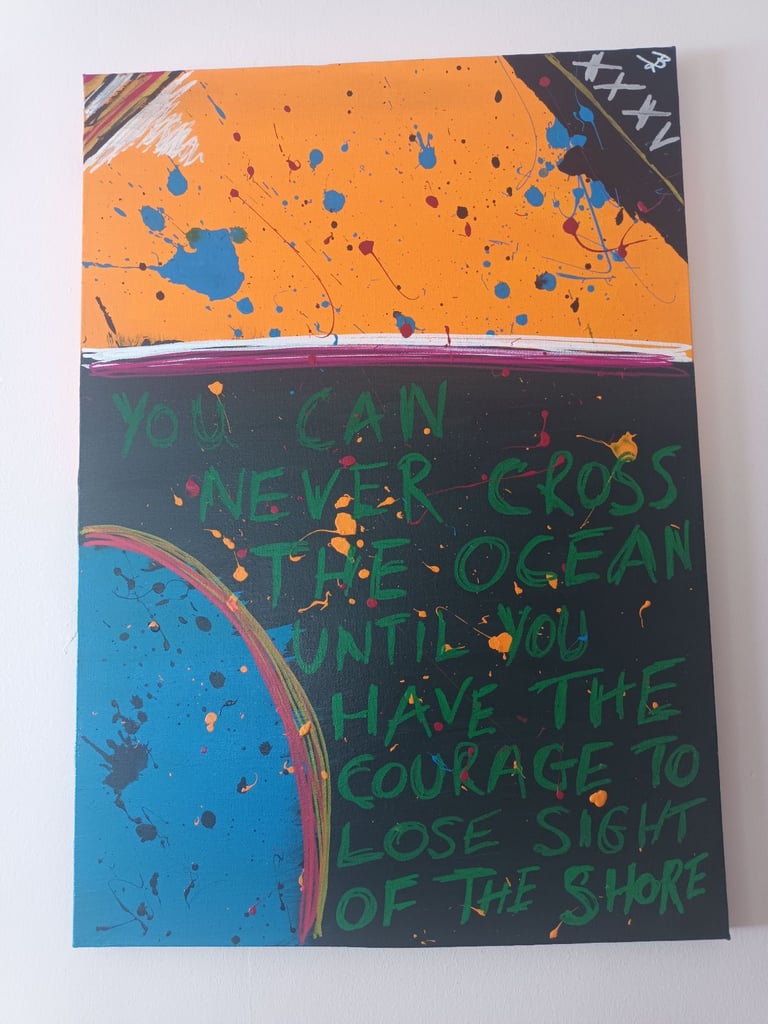 XXXV
YOU CAN
NEVER CROSS
THE OCEAN
UNTIL YOU
HAVE THE
COURAGE TO
LOSE SIGHT
OF THE SHORE